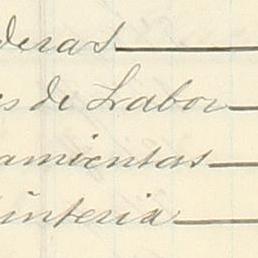 deras
s de Labor
amientas
interia